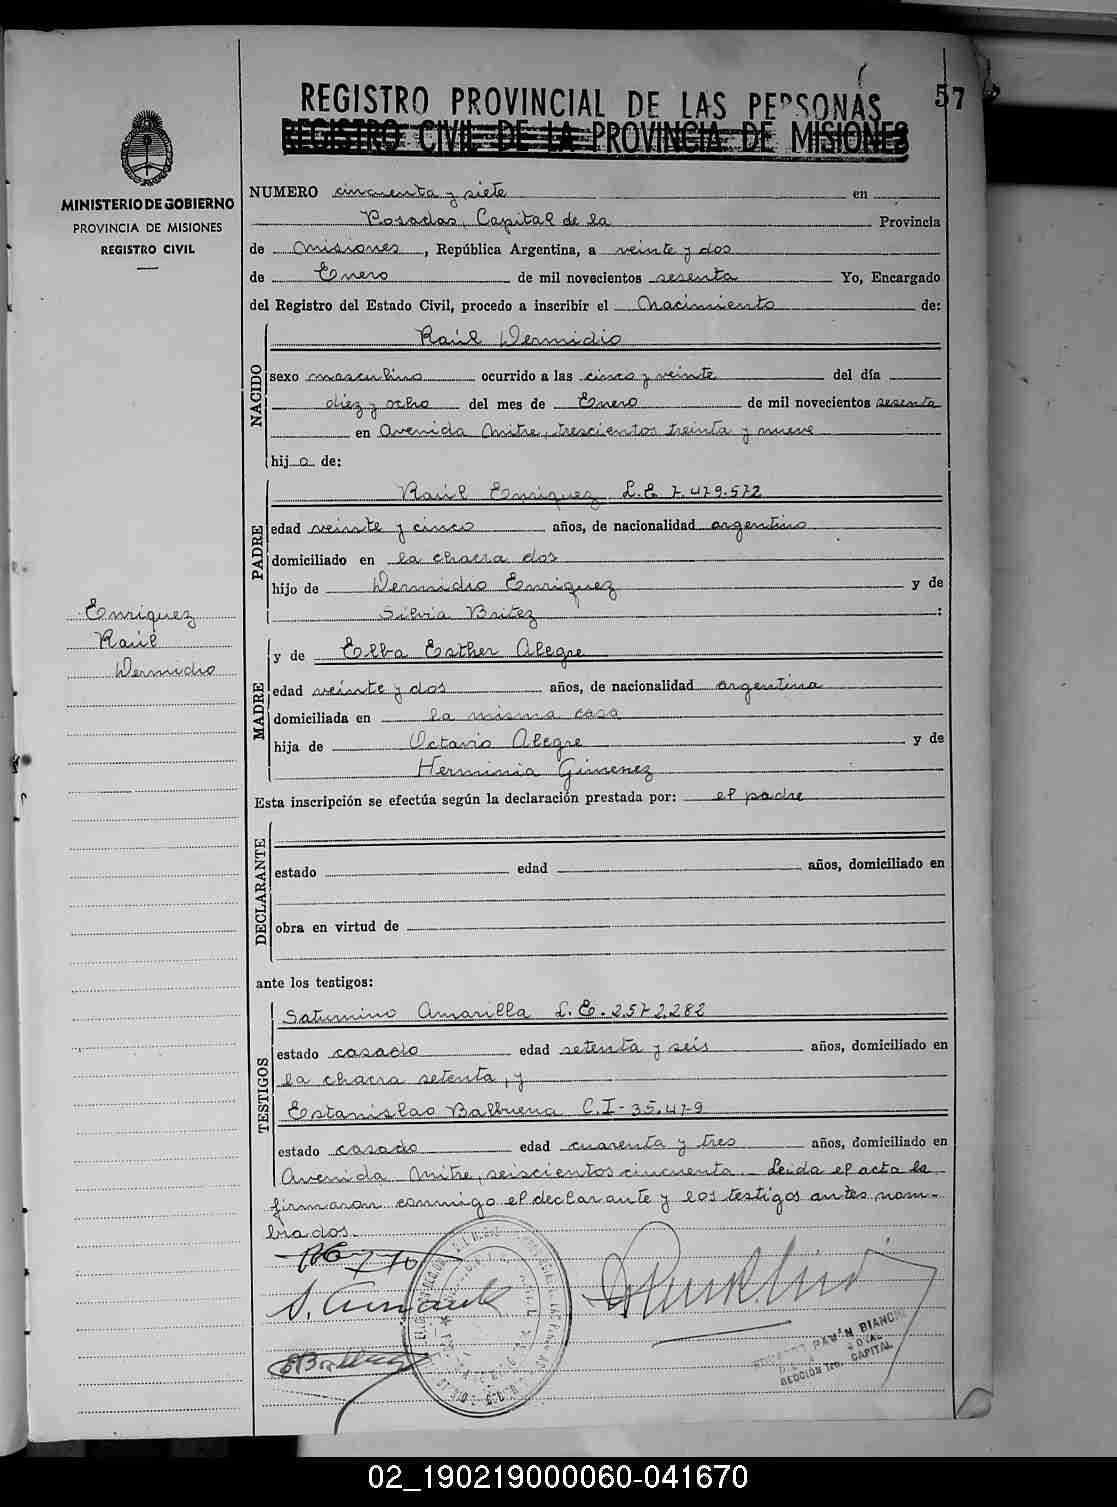 57
REGISTRO PROVINCIAL DE LAS PERSONAS
REGISTRO CIVIL DE LA PROVINCIA DE MISIONES
MINISTERIO DE GOBIERNO
PROVINCIA DE MISIONES
REGISTRO CIVIL
NUMERO cincuenta y siete en
Posadas, Capital de la Provincia
de Misiones, República Argentina, a veinte y dos
de Enero de mil novecientos sesenta Yo, Encargado
del Registro del Estado Civil, procedo a inscribir el Nacimiento de:
NACIDO
Raúl Wermidio
sexo masculino ocurrido a las cinco y veinte del día
diez y ocho del mes de Enero de mil novecientos sesenta
en Avenida Mitre, trescientos treinta y nueve
hijo de:
PADRE
Raúl Enriquez L.E 7.479.572
edad veinte y cinco años, de nacionalidad argentino
domiciliado en la chacra dos
hijo de Wermidio Enriquez y de
Silvia Britez :
Enriquez
Raúl
Wermidio
MADRE
y de Elba Esther Alegre
edad veinte y dos años, de nacionalidad argentina
domiciliada en la misma casa
hija de Octavio Alegre y de
Herminia Gimenez
Esta inscripción se efectúa según la declaración prestada por: el padre
DECLARANTE
estado edad años, domiciliado en
obra en virtud de
ante los testigos:
TESTIGOS
Saturnino Amarilla L.E. 2.572.282
estado casado edad setenta y seis años, domiciliado en
la chacra setenta, y
Estanislao Balbuena C.I - 35.479
estado casado edad cuarenta y tres años, domiciliado en
Avenida Mitre, seiscientos cincuenta. Leida el acta la
firmaron conmigo el declarante y los testigos antes nom-
brados.
RAMÓN BIANCHI
SECCIÓN 1ra. CAPITAL
02_190219000060-041670